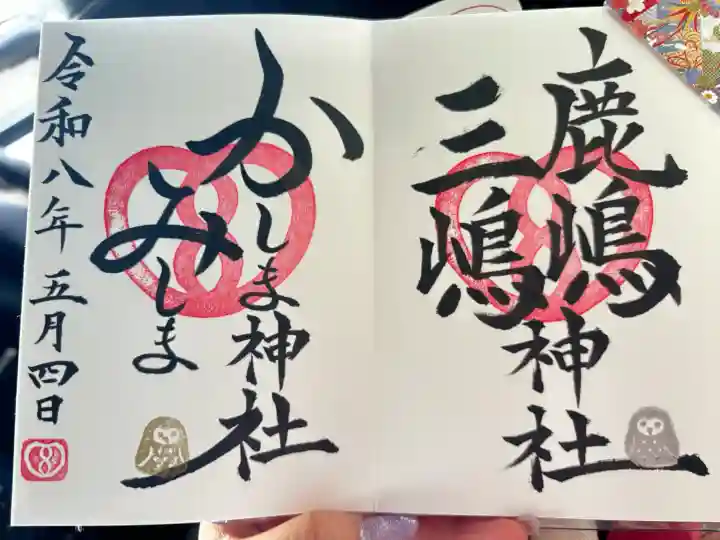 鹿嶋
三嶋
神社
かしま神社
みしま
令和八年五月四日